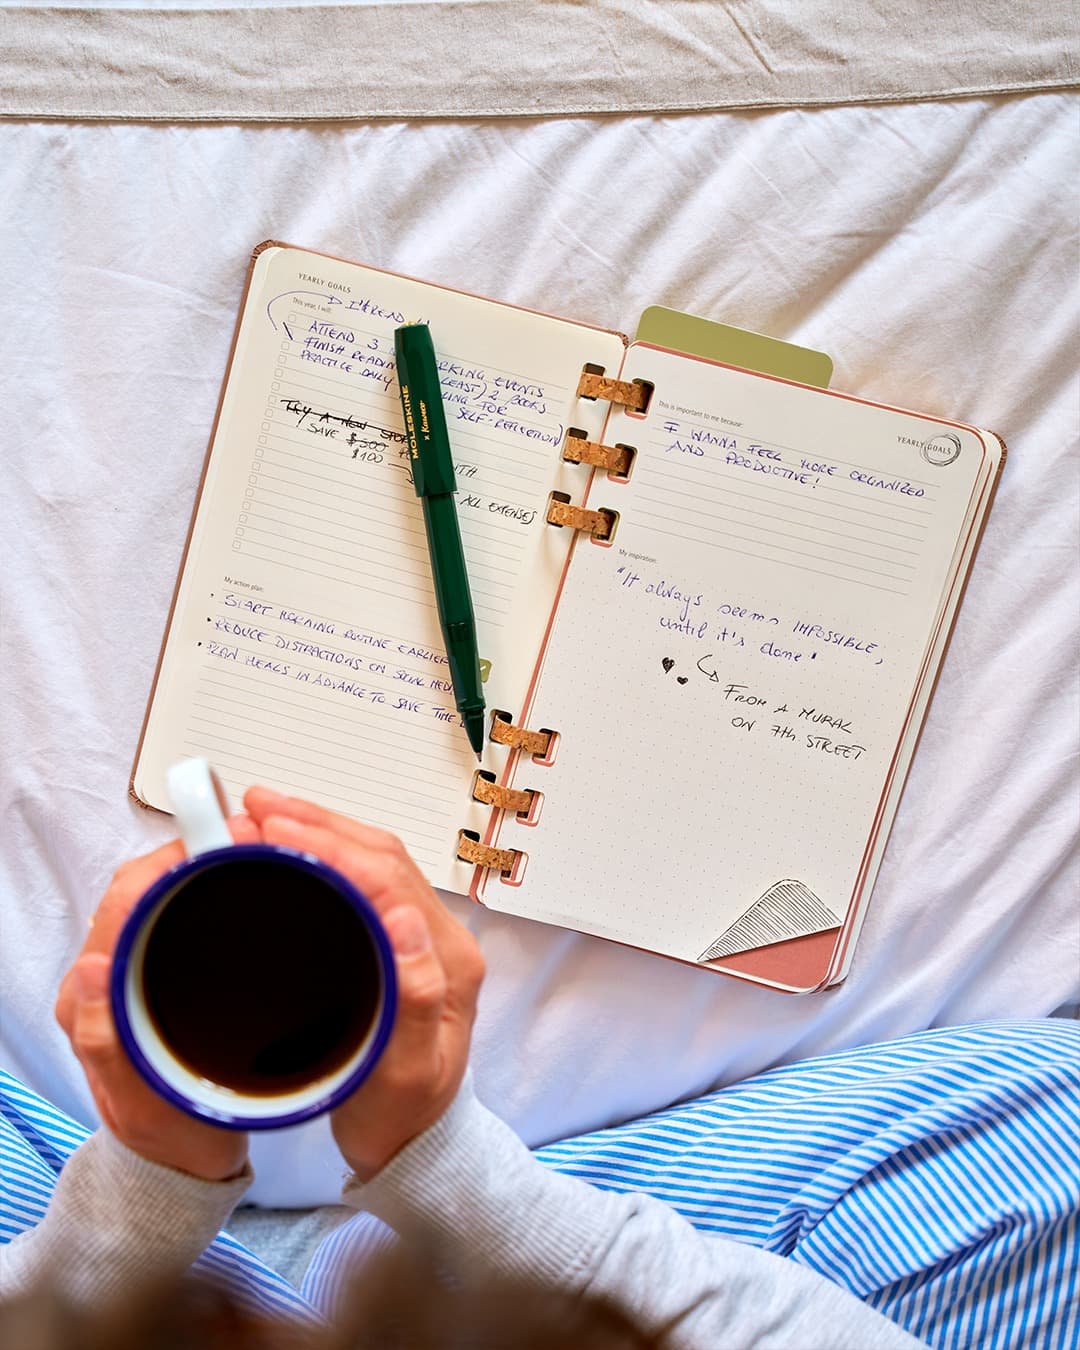 YEARLY GOALS
This year, I will:
ATTEND 3
RKING EVENTS
FINISH READIN
LEAST) 2 BOOKS
PRACTICE DAILY
LING FOR
SELF-REFLECTION)
TRY A NEW
SAVE $500
$100
ALL EXENSES
My action plan:
• START MORNING ROUTINE EARLIER
• REDUCE DISTRACTIONS ON SOCIAL MED
• PLAN MEALS IN ADVANCE TO SAVE TIME
MOLESKINE
x Kaweco
This is important to me because:
YEARLY GOALS
I WANNA FEEL MORE ORGANIZED
AND PRODUCTIVE!
My inspiration:
"It always seems IMPOSSIBLE,
until it's done"
FROM A MURAL
ON 7th STREET